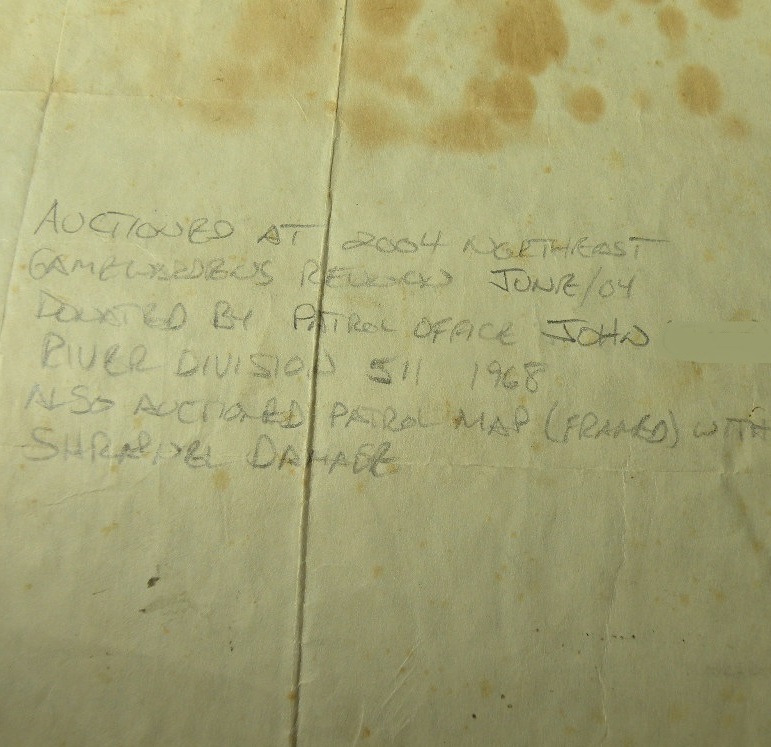 AUCTIONED AT 2004 NORTHEAST
GAMEWARDENS REUNION JUNE/04
DONATED BY PATROL OFFICE JOHN
RIVER DIVISION 511 1968
ALSO AUCTIONED PATROL MAP (FRAMED) WITH
SHRAPNEL DAMAGE